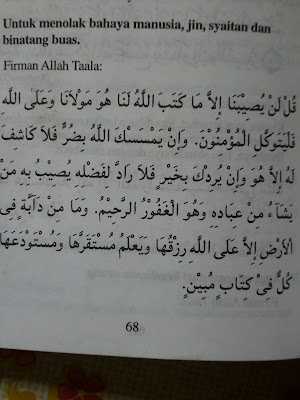 Untuk menolak bahaya manusia, jin, syaitan dan
binatang buas.
Firman Allah Taala:
قُلْ لَنْ يُصِيْبَنَا إِلاَّ مَا كَتَبَ اللَّهُ لَنَا هُوَ مَوْلاَنَا وَعَلَى اللَّهِ
فَلْيَتَوَكَّلِ الْمُؤْمِنُوْنَ. وَإِنْ يَمْسَسْكَ اللَّهُ بِضُرٍّ فَلاَ كَاشِفَ
لَهُ إِلاَّ هُوَ وَإِنْ يُرِدْكَ بِخَيْرٍ فَلاَ رَادَّ لِفَضْلِهِ يُصِيْبُ بِهِ مَنْ
يَشَآءُ مِنْ عِبَادِهِ وَهُوَ الْغَفُوْرُ الرَّحِيْمُ. وَمَا مِنْ دَآبَّةٍ فِى
الْأَرْضِ إِلاَّ عَلَى اللَّهِ رِزْقُهَا وَيَعْلَمُ مُسْتَقَرَّهَا وَمُسْتَوْدَعَهَا
كُلٌّ فِىْ كِتَابٍ مُبِيْنٍ.
68